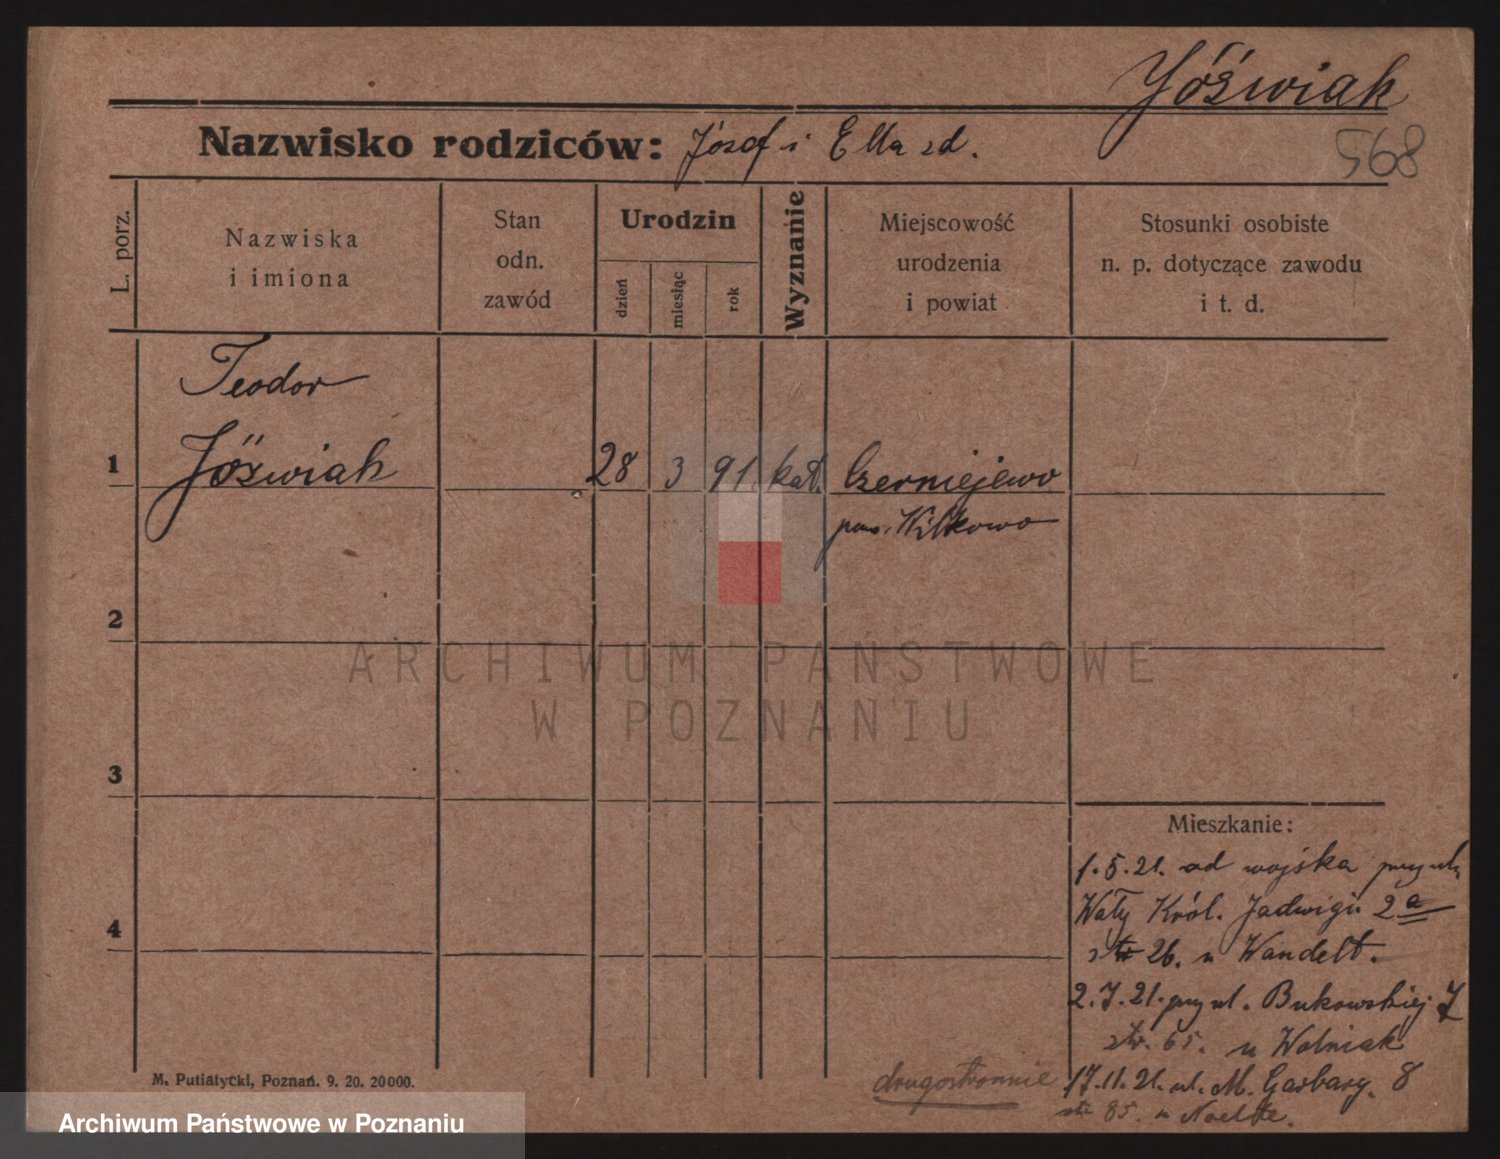 Jóźwiak
568
Nazwisko rodziców: Józef i Ella zd.
L. porz.
Nazwiska
i imiona
Stan
odn.
zawód
Urodzin
dzień
miesiąc
rok
Wyznanie
Miejscowość
urodzenia
i powiat
Stosunki osobiste
n. p. dotyczące zawodu
i t. d.
Teodor
1 Jóźwiak 28 3 91. kat. Czerniejewo
pow. Witkowo
2
ARCHIWUM PAŃSTWOWE
W POZNANIU
3
Mieszkanie:
1.5.21. od wojska przy ul.
Wały Król. Jadwigi 2a
4
str 26. u Wandelt.
2.7.21. przy ul. Bukowskiej 7
str. 65. u Wolniak
drugostronnie
17.11.21. ul. M. Garbary. 8
str 85. u Noelte.
M. Putiatycki, Poznań. 9. 20. 20000.
Archiwum Państwowe w Poznaniu